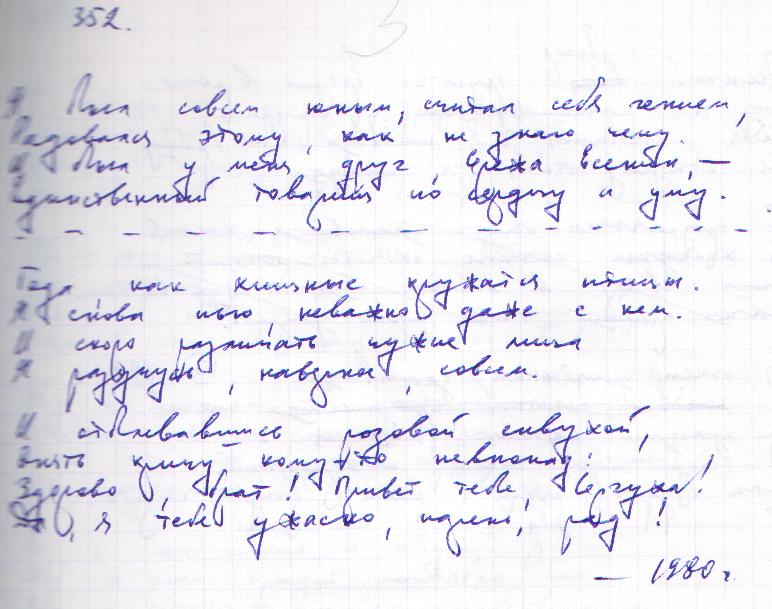 352.
Я был совсем юным, считал себя гением,
Радовался этому, как не знаю чему.
И был у меня друг, Серёжа
Единственный товарищ по сердцу и уму.
— — — — — — — — — — — — —
Года как хищные кружатся птицы.
Я снова пью, неважно даже с кем.
И скоро различать чужие лица
Я разучусь, наверное, совсем.
И отблевавшись розовой сивухой,
Опять кричу кому-то невпопад:
Здорово, брат! Привет тебе, Сергуха!
я тебе ужасно, парень, рад!
— 1980 г.